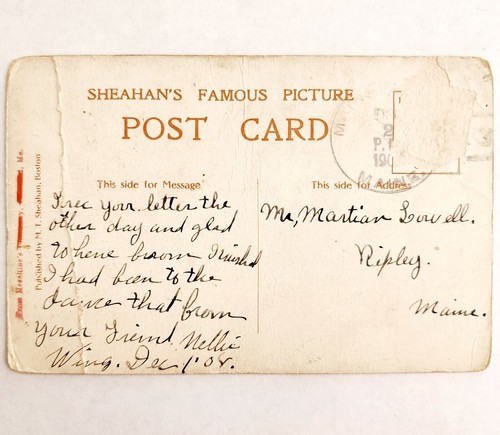 SHEAHAN'S FAMOUS PICTURE
POST CARD
This side for Message
This side for Address
MAINE
P.
190
I rec your letter the
other day and glad
to here I wished
I had been to the
dance that
your friend Nellie
Wing. Dec 1 '08.
Mr, Martian Lowell.
Ripley.
Maine.
Published by M. T. Sheahan, Boston
From Me.